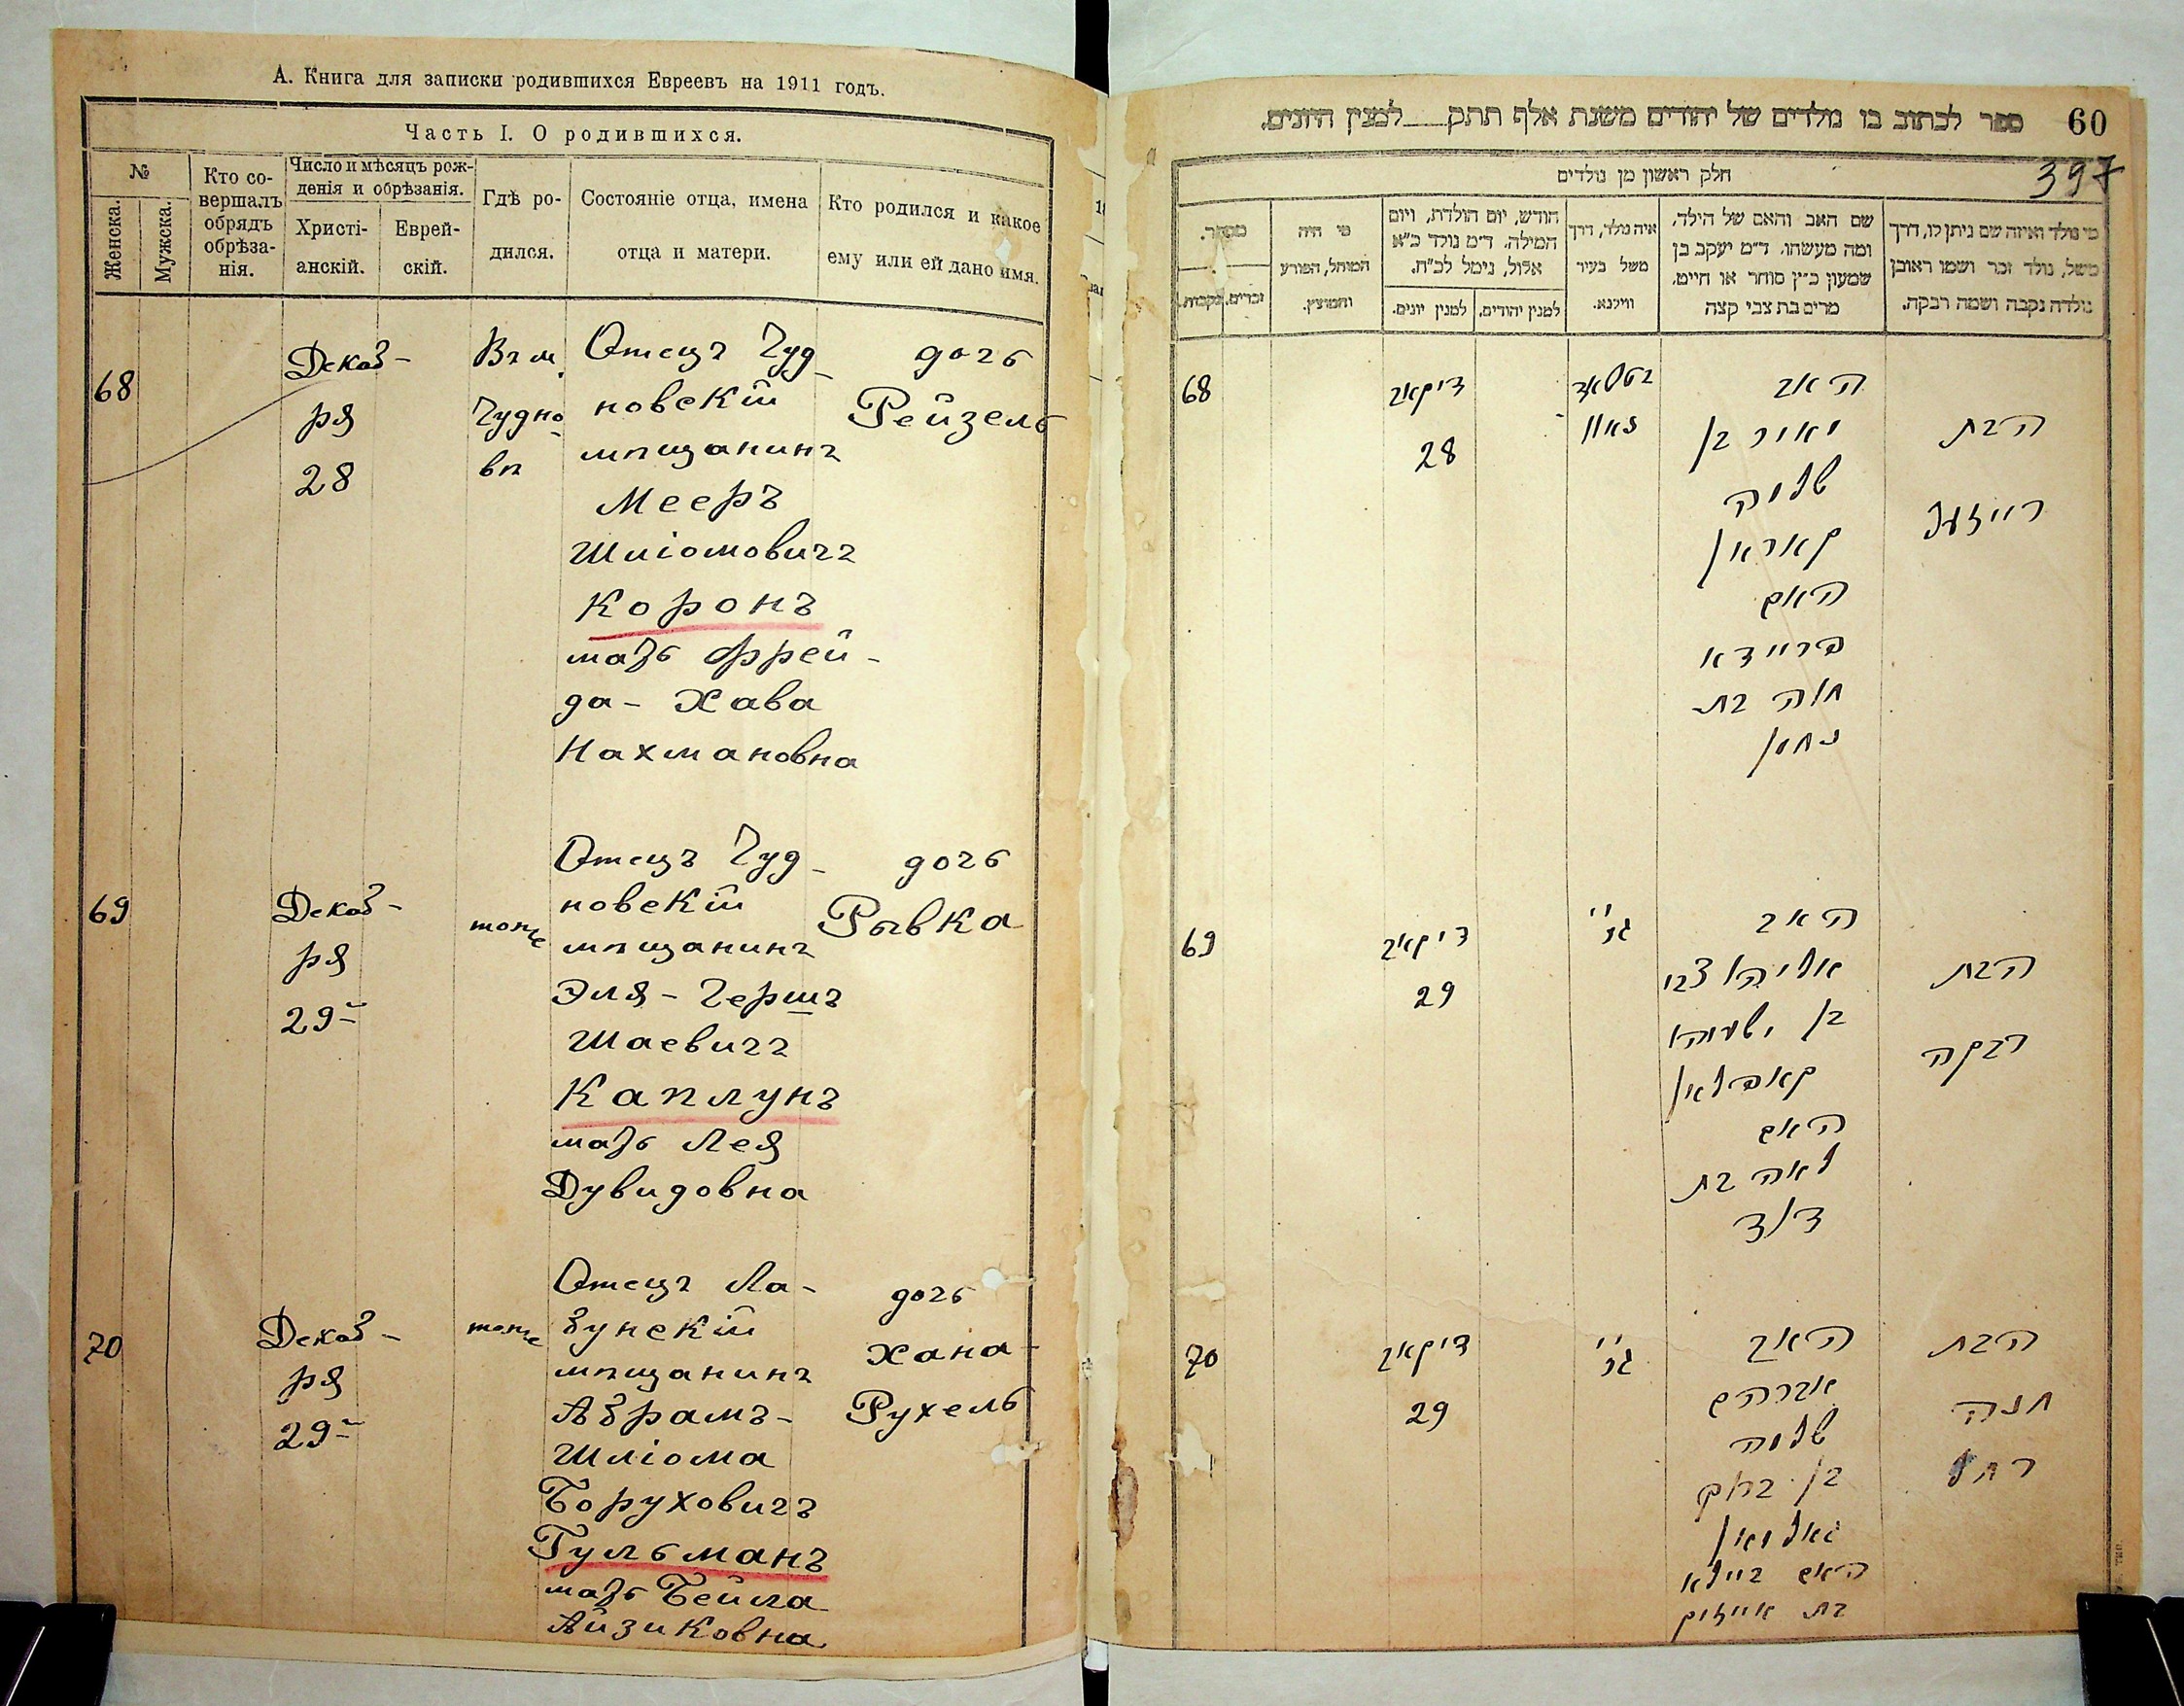 А. Книга для записки родившихся Евреевъ на 1911 годъ.
Часть I. О родившихся.
№
Женска.
Мужска.
Кто со-
вершалъ
обрядъ
обрѣза-
нія.
Число и мѣсяцъ рож-
денія и обрѣзанія.
Христі-
анскій.
Еврей-
скій.
Гдѣ ро-
дился.
Состояніе отца, имена
отца и матери.
Кто родился и какое
ему или ей дано имя.
68
Декаб-
ря
28
Въ м.
Чудно-
вѣ
Отецъ Чуд-
новскій
мѣщанинъ
Мееръ
Шліомовичъ
Коронъ
мать Фрей-
да-Хава
Нахмановна
дочь
Рейзель
69
Декаб-
ря
29-
тоже
Отецъ Чуд-
новскій
мѣщанинъ
Эля-Гершъ
Шаевичъ
Каплунъ
мать Лея
Дувидовна
дочь
Рывка
70
Декаб-
ря
29-
тоже
Отецъ Ла-
бунскій
мѣщанинъ
Абрамъ-
Шліома
Боруховичъ
Гульманъ
мать Бейла
Айзиковна
дочь
Хана-
Рухель
60
ספר לכתוב בו נולדים של יהודים משנת אלף תתק___למנין היונים.
397
חלק ראשון מן נולדים
מי נולד ואיזה שם ניתן לו, דרך
משל, נולד זכר ושמו ראובן
נולדה נקבה ושמה רבקה.
שם האב והאם של הילד,
ומה מעשהו. ד"מ יעקב בן
שמעון כ"ץ סוחר או חייט.
מרים בת צבי קצה
איה נולד, דרך
משל בעיר
ווילנא.
חודש, יום הולדת, ויום
המילה. ד"מ נולד כ"א
אלול, נימל לכ"ח.
למנין יהודים.
למנין יונים.
מי היה
המוהל, הפורע
והמוצץ.
מספר.
זכרים.
נקבות.
68
דיקאב
28
האב
יאיר בן
שלמה
קאראן
האם
פריידא
חוה בת
נחמן
הבת
רייזעל
69
דיקאב
29
גנ"י
האב
אליהו צבי
בן ישעיהו
קאפלאן
האם
לאה בת
דוד
הבת
רבקה
70
דיקאב
29
גנ"י
האב
אברהם
שלמה
בן ברוך
גאלמאן
האם ביילא
בת אייזיק
הבת
חנה
רחל